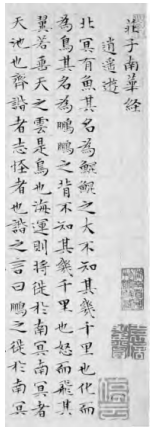 莊子南華經
逍遙遊
北冥有魚其名為鯤鯤之大不知其幾千里也化而
為鳥其名為鵬鵬之背不知其幾千里也怒而飛其
翼若垂天之雲是鳥也海運則將徙於南冥南冥者
天池也齊諧者志怪者也諧之言曰鵬之徙於南冥